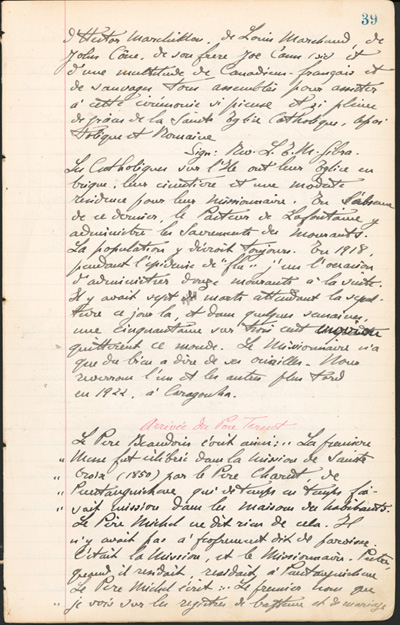 39
d'Hector Marchildon, de Louis Marchand, de
John Cône, de son frere Joe Cann (sic) et
d'une multitude de Canadiens-français et
de sauvages tous assemblés pour assister
à cette cérémonie si pieuse et si pleine
de grâces de la Sainte Eglise Catholique, Apos
tolique et Romaine
Sign: Rév. L.E.M. Gibra.
Les Catholiques sur l'Ile ont leur Eglise en
brique, leur cimetière et une modeste
residence pour leur missionnaire. En l'absence
de ce dernier, le Pasteur de Lafontaine y
administre les sacrements des mourants.
La population y décroit toujours. En 1918,
pendant l'épidemie de "flu", j'eus l'occasion
d'administrer douze mourants à la suite.
Il y avait sept morts attendant la sepul
ture ce jour là, et dans quelques semaines,
une cinquantaine sur trois cent
quittèrent ce monde. Le Missionnaire n'a
que du bien a dire de ses ouailles. Nous
reverrons l'un et les autres plus tard
en 1922, à
Arrivée du Père Ternet
Le Père Beaudoin écrit ainsi: "La première
" Messe fut célébrée dans la mission de Sainte
" Croix (1850) par le Père Charest de
" Penetanguishene, qui de temps en temps fai-
" sait mission dans les maisons des habitants.
Le Père Michel ne dit rien de cela. Il
n'y avait pas à proprement dit de paroisse.
C'était la Mission, et le Missionnaire-Pretre,
quand il residait, residait à Penetanguishene
Le Père Michel écrit: "Le premier nom que
" je vois sur les registres de baptême et de mariage